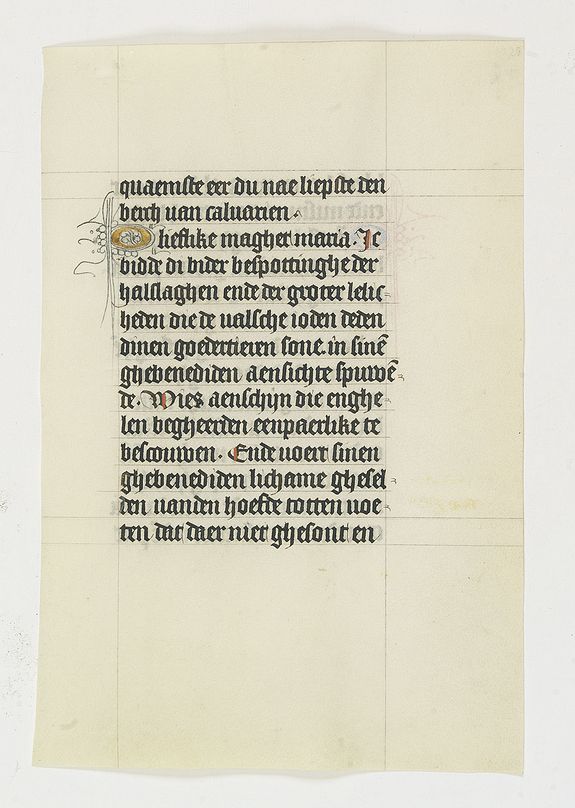 quaemste eer du nae liepste den
berch van caluarien.
O lieflike maghet maria. Ic
bidde di bider bespottinghe der
halslaghen ende der groter lelic
heden die de valsche ioden deden
dinen goedertieren sone. in sinē
ghebenediden aensichte spuwē
de. Wies aenschijn die enghe
len begheerden eenpaerlike te
bescouwen. Ende voert sinen
ghebenediden lichame ghesel
den vanden hoefde totten voe
ten dat daer niet ghesont en